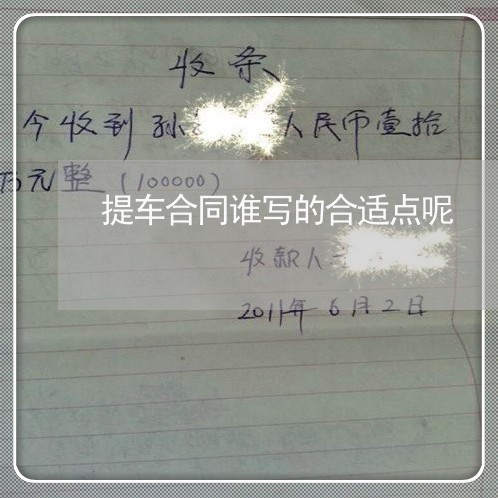 收条
今收到孙 人民币壹拾
万元整(100000)
提车合同谁写的合适点呢
收款人
2011年6月2日